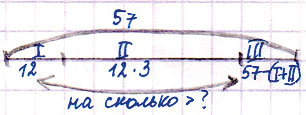 57
I II III
12 12·3 57-(I+II)
на сколько >?